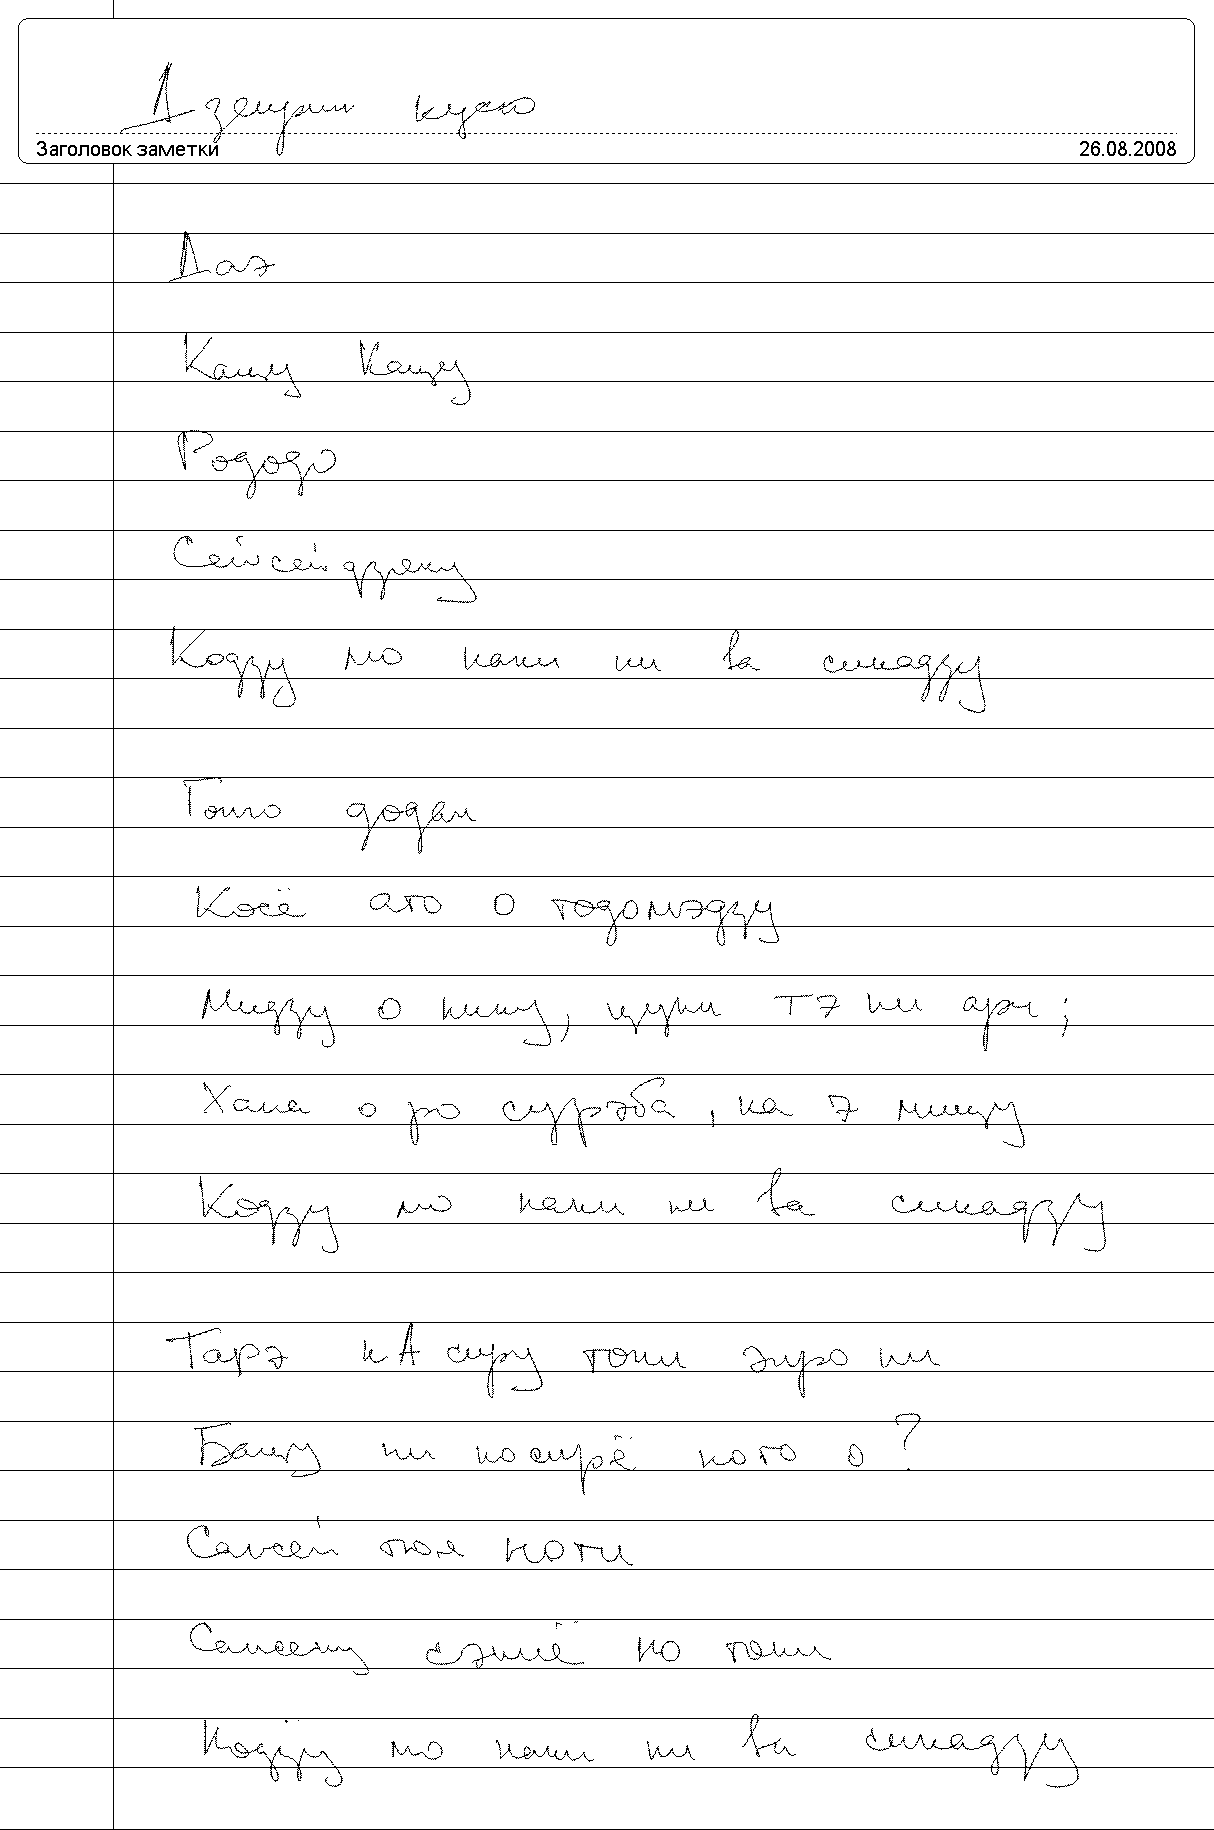 Дзенрин кусю
Заголовок заметки 26.08.2008
Даэ
Кацу Кацу
Рододо
Сейсейдзяку
Кодзу мо нани ни ва синадзу
Тони додан
Косё ато о тодомэдзу
Мидзу о кику, цуки тэ ни ари;
Хана о ро сурэба, ка э мицу
Кодзу мо нани ни ва синадзу
Тарэ кА сиру токи энро ни
Бацу ни косирё ното о?
Сансей тоя ноти
Сансену сэпиё но токи
Кодзу мо нани ни ва синадзу